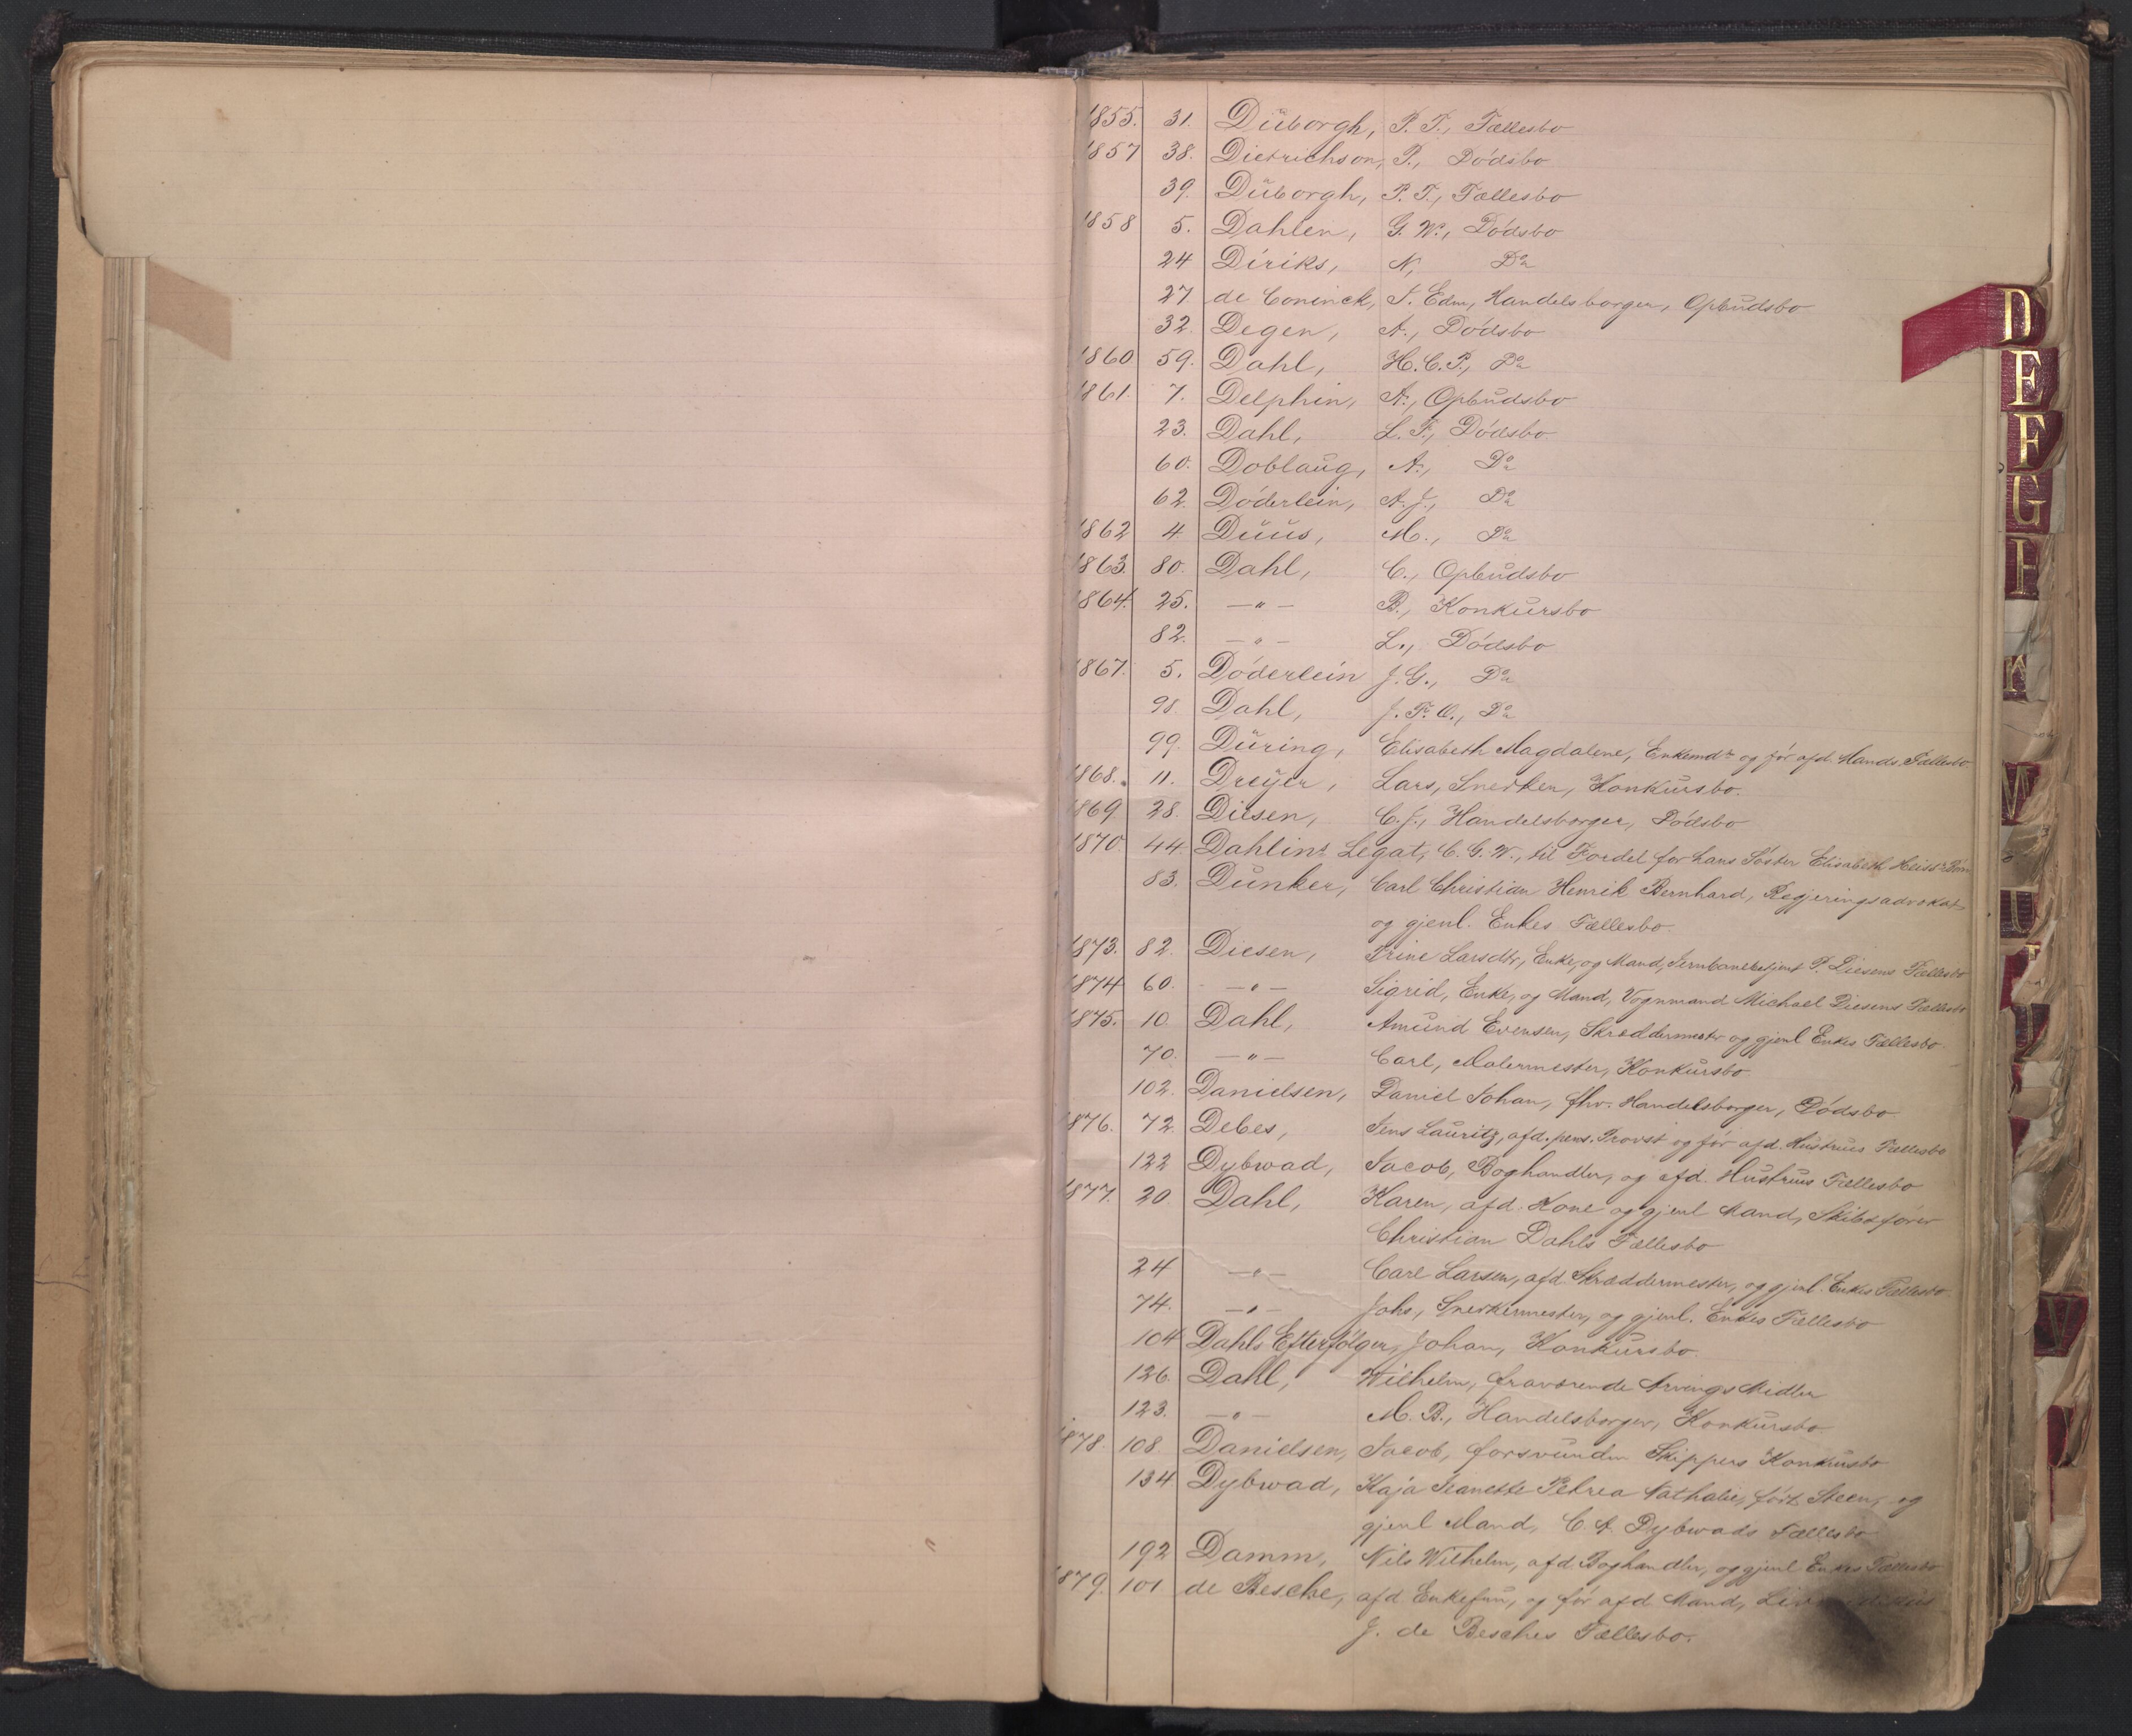 1855. 31. Düborgh, P. T., Fællesbo
1857 38. Dietrichson, P., Dødsbo
39. Düborgh, P. T., Fællesbo
1858 5. Dahlen, G. W., Dødsbo
24 Diriks, N, Do
27. de Coninck, F. Edm, Handelsborger, Opbudsbo
32. Degen, A., Dødsbo
1860 59. Dahl, H. C. P., Do
1861. 7. Delphin, A., Opbudsbo
23. Dahl, L. F., Dødsbo
60. Doblaug, A., Do
62. Døderlein, A. J., Do
1862 4 Duus, M., Do
1863. 80. Dahl, C., Opbudsbo
1864. 25. —"— B., Konkursbo
82. —"— L., Dødsbo
1867. 5. Døderlein J. G., Do
98. Dahl, J. Fr. O., Do
99. Düring, Elisabeth Magdalene, Enkemd. og før afd. Mands Fællesbo
1868. 11. Dreyer, Lars, Snedker, Konkursbo.
1869. 28. Diesen, C. J., Handelsborger, Dødsbo
1870. 44. Dahlins Legat, C. G. W., til Fordel for hans Søster Elisabeth
83. Dunker, Carl Christian Henrik Bernhard, Regjeringsadvokat
og gjenl. Enkes Fællesbo.
1873. 82. Diesen, Trine Larsdtr, Enke, og Mand, Jernbanebetjent P. Diesens Fællesbo
1874 60. —"— Sigrid, Enke, og Mand, Vognmand Michael Diesens Fællesbo
1875. 10 Dahl, Amund Evensen, Skræddermestr og gjenl Enkes Fællesbo.
70. —"— Carl, Malermester, Konkursbo
102. Danielsen, Daniel Johan, fhv. Handelsborger, Dødsbo.
1876. 72. Debes, Jens Lauritz, afd. pens. Provst og før afd. Hustrus Fællesbo
122 Dybwad, Jacob, Boghandler, og afd. Hustrus Fællesbo
1877. 20. Dahl, Karen, afd. Kone og gjenl Mand, Skibsfører
Christian Dahls Fællesbo
24 —"— Carl Larsen, afd Skræddermester, og gjenl. Enkes Fællesbo.
74. —"— Johs., Snedkermester, og gjenl. Enkes Fællesbo
104 Dahls Efterfølger, Johan, Konkursbo.
126. Dahl, Wilhelm, fraværende Arvings Midler
123. —"— M. B., Handelsborger, Konkursbo.
1878. 108. Danielsen, Jacob, forsvunden Skippers Konkursbo
134 Dybwad, Kaja Jeanette Petrea Nathalie, født Steen, og
gjenl Mand, C. A. Dybwads Fællesbo
192 Damm, Nils Wilhelm, afd. Boghandler, og gjenl Enkes Fællesbo
1879. 101 de Besche, afd Enkefru, og før afd Mand,
J. de Besches Fællesbo.
D
E
F
G
I
V